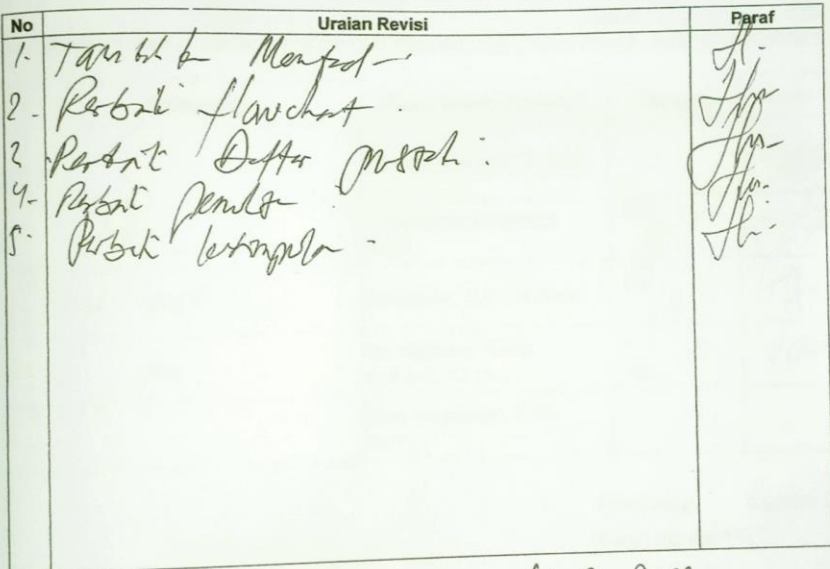 No Uraian Revisi Paraf
1. Tambahkan Manfaat
2. Perbaiki flowchart.
3. Perbaiki Daftar pustaka.
4. Perbaiki penulisan
5. Perbaiki kesimpulan.